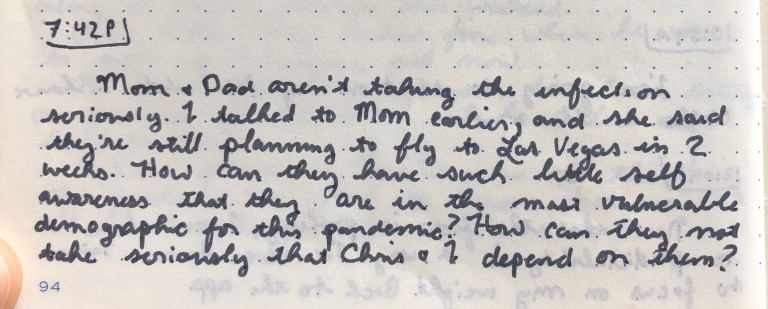 7:42P
Mom & Dad aren't taking the infection
seriously. I talked to Mom earlier, and she said
they're still planning to fly to Las Vegas in 2
weeks. How can they have such little self
awareness that they are in the most vulnerable
demographic for this pandemic? How can they not
take seriously that Chris & I depend on them?
94